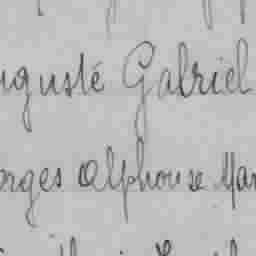 uguste Gabriel
orges Alphonse Mar